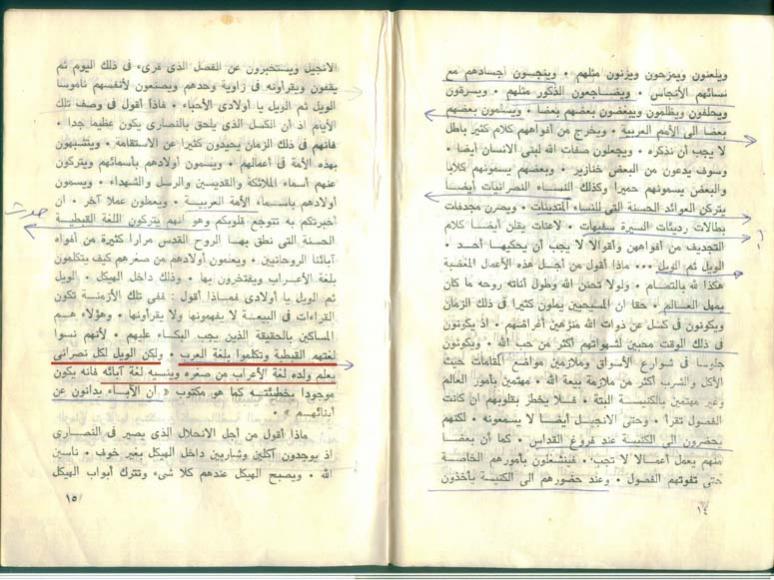 ويلعنون ويمزحون ويزنون مثلهم • وينجسون أجسادهم مع
نسائهم الأنجاس • ويضاجعون الذكور مثلهم • ويسرقون
ويحلفون ويظلمون ويبغضون بعضهم بعضا • ويسلمون بعضهم
بعضا الى الأمم العربية • ويخرج من أفواههم كلام كثير باطل
لا يجب أن نذكره • ويجعلون صفات الله لبنى الانسان أيضا •
وسوف يدعون من البعض خنازير • وبعضهم يسمونهم كلابا
والبعض يسمونهم حميرا وكذلك النساء النصرانيات أيضا
يتركن العوائد الحسنة التى للنساء المتدينات • ويصرن مجدفات
بطالات رديئات السيرة سفيهات • لاعنات يقلن أيضا كلام
التجديف من أفواههن وأقوالا لا يجب أن يحكيها أحد •
الويل ثم الويل ••• ماذا أقول من أجل هذه الأعمال المغضبة
هكذا لله بالتمام • ولولا تحنن الله وطول أناته روحه ما كان
يمهل العالم • حقا ان المسيحيين يملون كثيرا فى ذلك الزمان
ويكونون فى كسل عن ذوات الله منزعين أغراضهم • اذ يكونون
فى ذلك الوقت محبين لشهواتهم أكثر من حب الله • ويكونون
جلوسا فى شوارع الأسواق وملازمين مواضع المقامات حيث
الأكل والشرب أكثر من ملازمة بيعة الله • مهتمين بأمور العالم
وغير مهتمين بالكنيسة البتة • فلا يخطر بقلوبهم ان كانت
الفصول تقرأ • وحتى الانجيل أيضا لا يسمعونه • لكنهم
يحضرون الى الكنيسة عند فروغ القداس • كما أن بعضا
منهم يعمل أعمالا لا تجب • فينشغلون بأمورهم الخاصة
حتى تفوتهم الفصول • وعند حضورهم الى الكنيسة يأخذون
١٤
الانجيل ويستخبرون عن الفصل الذى قرىء فى ذلك اليوم ثم
يقفون ويقرأونه فى زاوية وحدهم ويصنعون لأنفسهم ناموسا
الويل ثم الويل يا أولادى الأحباء • فماذا أقول فى وصف تلك
الأيام اذ أن الكسل الذى يلحق بالنصارى يكون عظيما جدا •
فانهم فى ذلك الزمان يحيدون كثيرا عن الاستقامة • ويتشبهون
بهذه الأمة فى أعمالهم • ويسمون أولادهم بأسمائهم ويتركون
عنهم أسماء الملائكة والقديسين والرسل والشهداء • ويسمون
أولادهم باسماء الأمة العربية • ويعملون عملا آخر • ان
أخبرتكم به تتوجع قلوبكم وهو أنهم يتركون اللغة القبطية
الحسنة التى نطق بها الروح القدس مرارا كثيرة من أفواه
آبائنا الروحانيين • ويعلمون أولادهم من صغرهم كيف يتكلمون
بلغة الأعراب ويفتخرون بها • وذلك داخل الهيكل • الويل
ثم الويل يا أولادى فماذا أقول : ففى تلك الأزمنة تكون
القراءات فى البيعة لا يفهمونها ولا يقرأونها • وهؤلاء هم
المساكين بالحقيقة الذين يجب البكاء عليهم • لأنهم نسوا
لغتهم القبطية وتكلموا بلغة العرب • ولكن الويل لكل نصرانى
يعلم ولده لغة الأعراب من صغره وينسيه لغة آبائه فانه يكون
موجودا بخطيئته كما هو مكتوب « أن الآباء يدانون عن
أبنائهم » •
ماذا أقول من أجل الانحلال الذى يصير فى النصارى
اذ يوجدون آكلين وشاربين داخل الهيكل بغير خوف • ناسين
الله • ويصبح الهيكل عندهم كلا شىء وتترك أبواب الهيكل
١٥